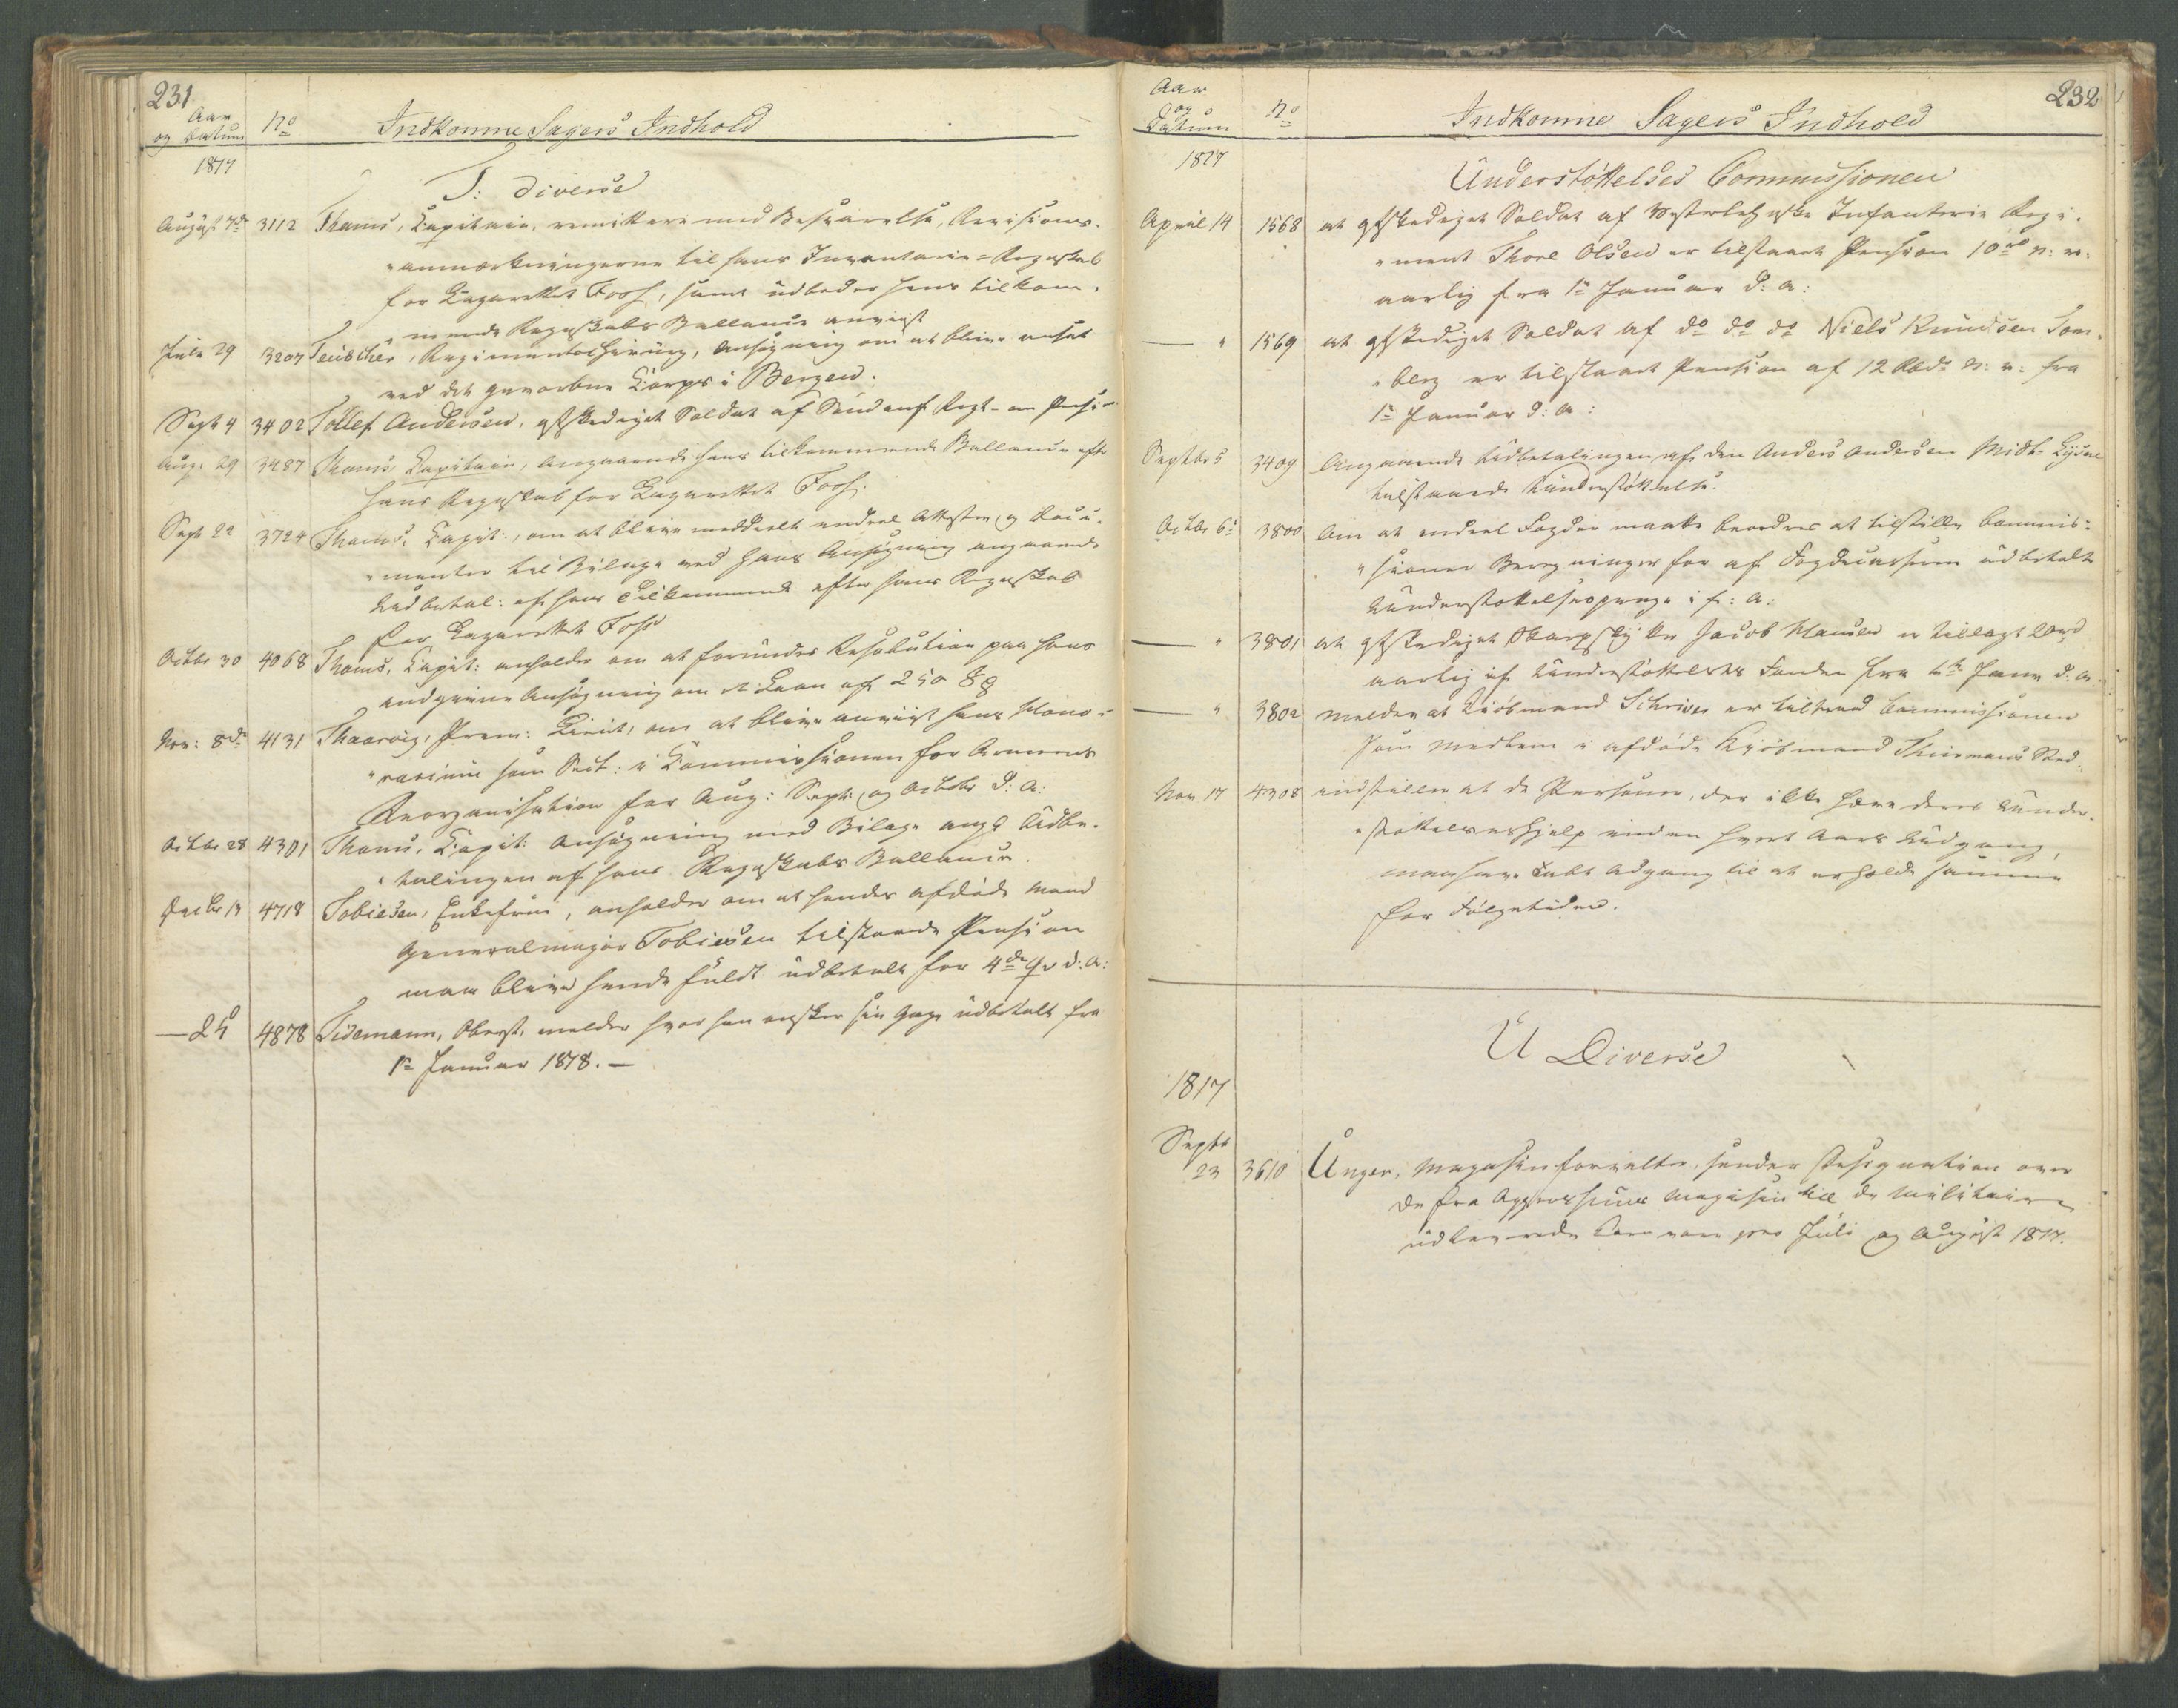 231
Aar
og Datum
No
Indkomne Sagers Indhold
1817
T: Diverse
August 7de 3112 Thams, Capitain, remitterer med Besvarelse, Revisions-
"anmærkningerne til hans Inventarie-Regnskab
for Lazarettet Foss, samt udbeder hans tilkom-
"mende Regnskabs Ballance anviist
Julii 29 3207 Teuscher, Regimentschirurg, Ansøgning om at blive ansat
ved det gevorbne Corps i Bergen.
Sept 4 3402 Tollef Andersen, afskediget Soldat af Regt- om Pension
Aug: 29 3487 Thams Capitain, angaaende hans tilkommende Ballance efter
hans Regnskab for Lazarettet Foss.
Sept 22 3724 Thams, Capit:, om at blive meddeelt endeel Attester og Docu-
"menter til Bilage ved hans Ansøgning angaaende
Udbetal: af hans Tilkommende efter hans Regnskab
for Lazarettet Foss
Octbr 30 4068 Thams, Capit: anholder om at forundes Resolution paa hans
indgivne Ansøgning om et Laan af 250
Nov: 8de 4131 Thaarvig, Prem: Lieut, om at blive anviist hans Hono-
"rarium som Secr: i Commissionen for Armeens
Reorganisation for Aug: Sept: og Octobr d: A:
Octbr 28 4301 Thams, Capit: Ansøgning med Bilage angl: Udbe-
"talingen af hans Regnskabs Ballance.
Decbr 13 4718 Tobiesen, Enkefrue, anholder om at hendes afdøde Mand
Generalmajor Tobiesen tilstaaede Pension
maa blive hende fuldt udbetalt for 4de Qv d: A:
— 24 4878 Tidemann, Oberst, melder hvor han ønsker sin Gage udbetalt fra
1ste Januar 1818. —
232
Aar
og
Datum
No
Indkomne Sagers Indhold
1817
Understøttelses Commissionen
April 14 1568 at afskediget Soldat af Vesterlehnske Infanterie Regi-
"ment Thore Olsen er tilstaaet Pension 10 rd n: v:
aarlig fra 1ste Januar d: A:
— " 1569 at afskediget Soldat af do do do Niels Knudsen Tom-
"berg er tilstaaet Pension af 12 Rbdr n: v: fra
1ste Januar d: A:
Septbr 5 3409 Angaaende Udbetalingen af den Anders Andersen Midt-
tilstaaede Understøttelse.
Octbr 6te 3800 Om at endeel Fogder maatte beordres at tilstille Commis-
"sionen Beregninger for af Fogdecasserne udbetalte
Understøttelsespenge i f: A:
— " 3801 at afskediget Skarpskytter Jacob Hansen er tillagt
aarlig af Understøttelses Fonden fra 1te Janr d. A.
— " 3802 melder at Kiøbmand Schriver er tiltraad Commissionen
som Medlem i afdøde Kjøbmand Thurmans Sted.
Nov 17 4308 indstiller at de Personer, der ikke hæve deres Under-
"støttelseshjelp inden hvert Aars Udgang,
maa have tabt Adgang til at erholde samme
for Følgetiden.
U Diverse
1817
Septbr
23 3610 Unger, Magasinforvalter, sender Designation over
de fra Aggershuus Magasin til de Militaire
udleverede pro Juli og August 1817.